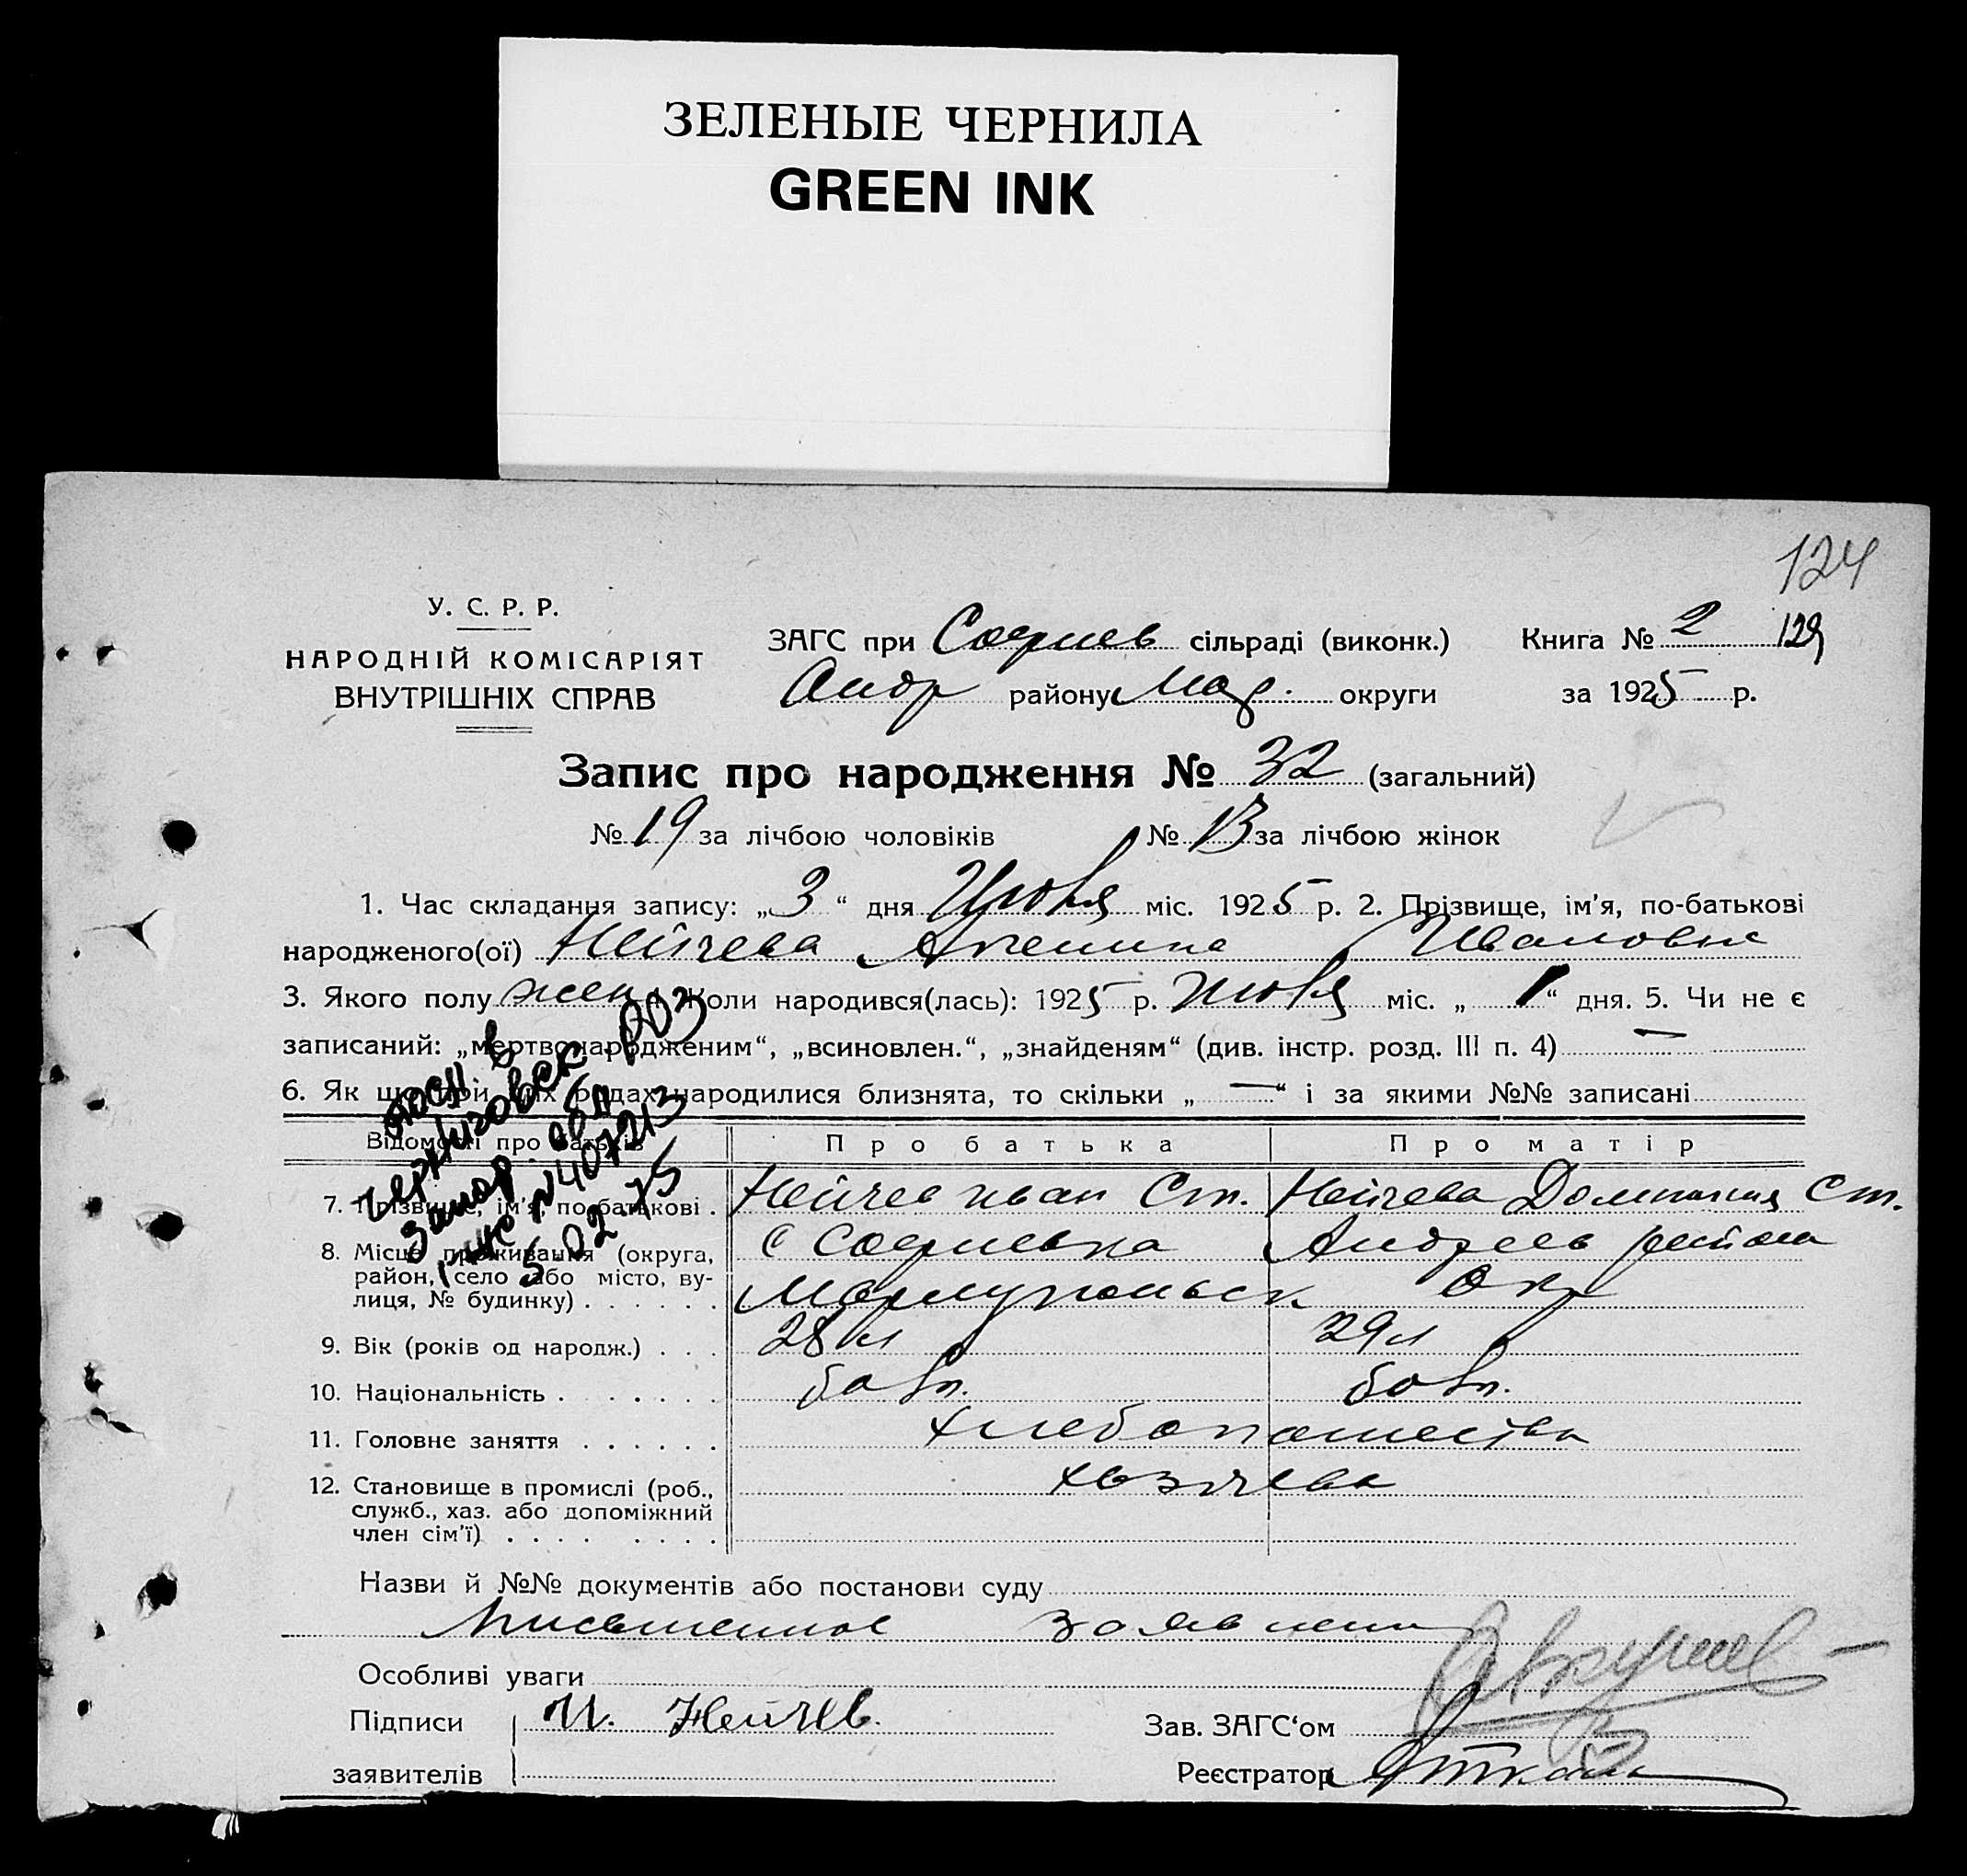 ЗЕЛЕНЫЕ ЧЕРНИЛА
GREEN INK
124
У. С. Р. Р.
НАРОДНІЙ КОМІСАРІЯТ
ВНУТРІШНІХ СПРАВ
ЗАГС при Софиев сільраді (виконк.) Книга № 2 129
Андр району Мар. округи за 1925 р.
Запис про народження № 32 (загальний)
№ 19 за лічбою чоловіків № 13 за лічбою жінок
1. Час складання запису: „3“ дня Июля міс. 1925 р. 2. Прізвище, ім'я, по-батькові
народженого(ої) Нейчева Ивановна
3. Якого полу жен 4. Коли народився(лась): 1925 р. июля міс. „1“ дня. 5. Чи не є
записаний: „мертвонародженим“, „всиновлен.“, „знайденям“ (див. інстр. розд. III п. 4) —
6. Як що при цих родах народилися близнята, то скільки „—“ і за якими №№ записані
Відомості про батьків Про батька Про матір
7. Прізвище, ім'я, по-батькові . Нейчев Иван Ст. Нейчева Ст.
8. Місце проживання (округа, район, село або місто, ву-лиця, № будинку) . . . . . . с Софиевка Андреев района
Мариупольск Окр
9. Вік (років од народж.) . . . 28 л 29 л
10. Національність . . . . . . . болг. болг.
11. Головне заняття . . . . . . хлебопашества
12. Становище в промислі (роб., служб., хаз. або допоміжний член сім'ї) . . . . . . . .
в
Черниговск РОЗ
Запор. обл
№407213
5 02 75
Назви й №№ документів або постанови суду
Письменное заявление
Особливі уваги
Підписи И. Нейчев.
заявителів
Зав. ЗАГС‘ом
Реєстратор